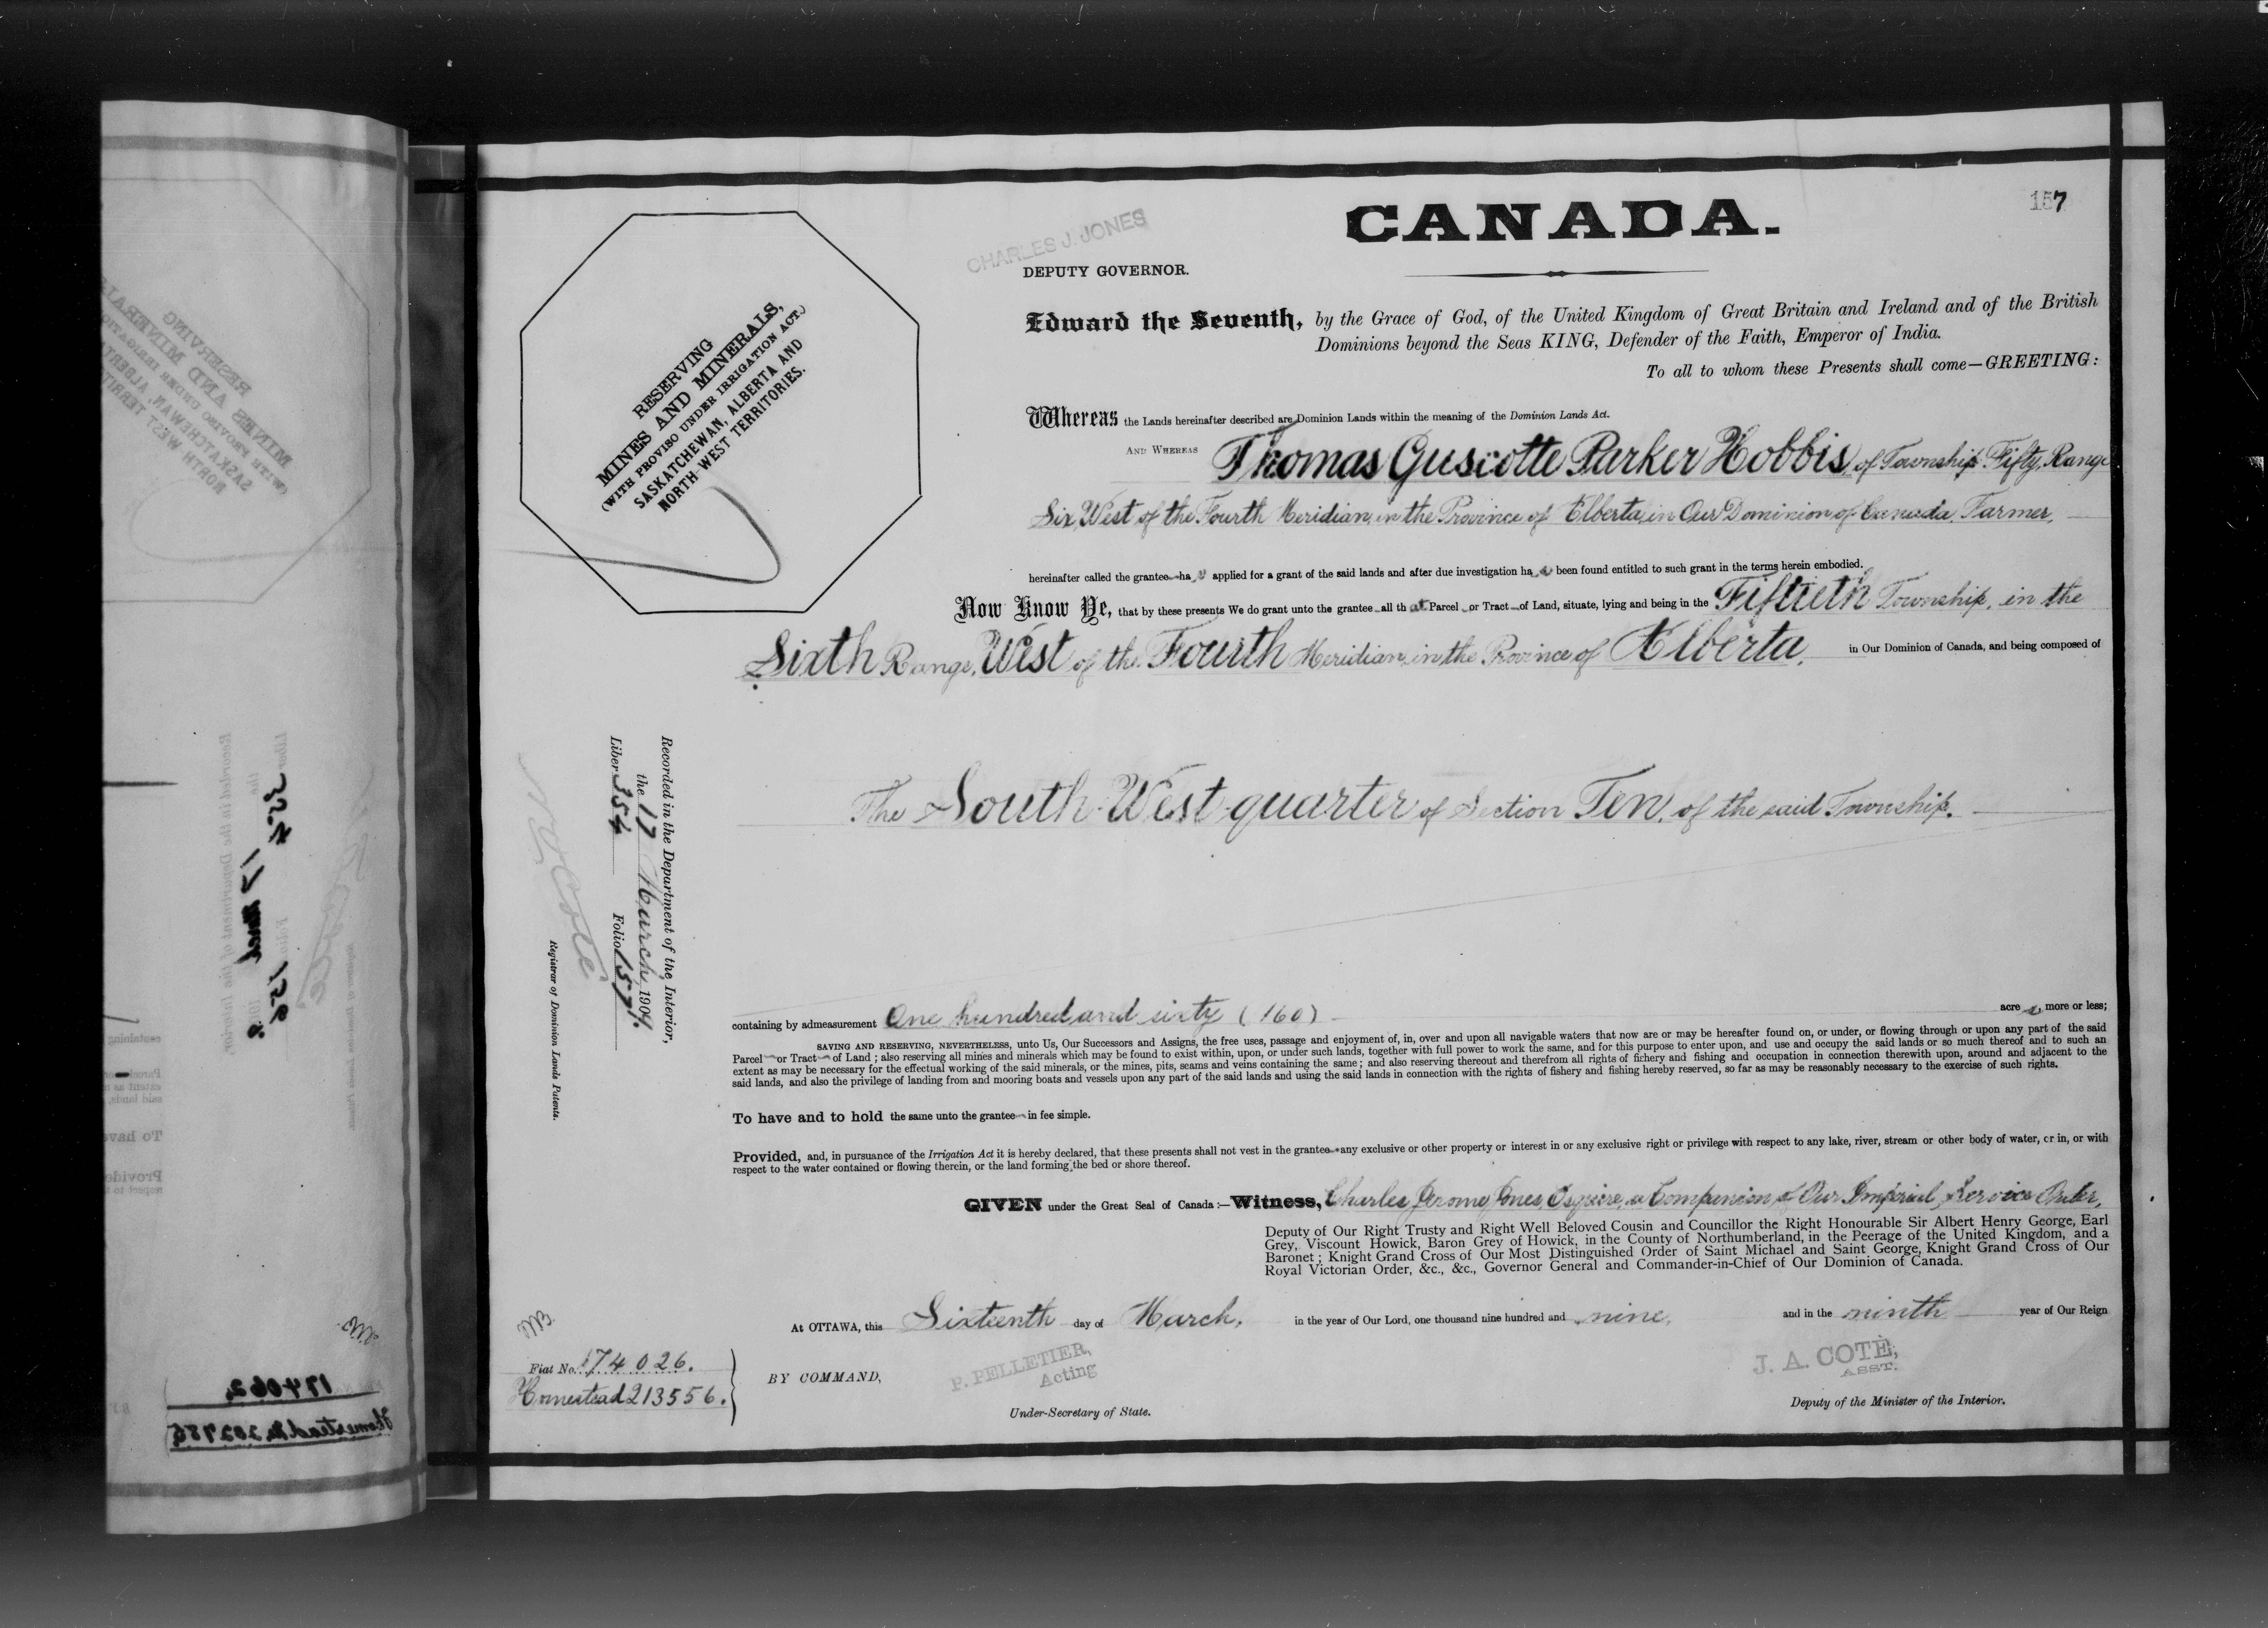 157
CANADA.
CHARLES J. JONES
DEPUTY GOVERNOR.
RESERVING
MINES AND MINERALS,
(WITH PROVISO UNDER IRRIGATION ACT.)
SASKATCHEWAN, ALBERTA AND
NORTH-WEST TERRITORIES.
Edward the Seventh, by the Grace of God, of the United Kingdom of Great Britain and Ireland and of the British
Dominions beyond the Seas KING, Defender of the Faith, Emperor of India.
To all to whom these Presents shall come—GREETING:
Whereas the Lands hereinafter described are Dominion Lands within the meaning of the Dominion Lands Act.
AND WHEREAS Thomas Guscotte Parker Hobbis, of Township Fifty, Range
Six, West of the Fourth Meridian, in the Province of Alberta, in Our Dominion of Canada, Farmer,
hereinafter called the grantee ha s applied for a grant of the said lands and after due investigation ha s been found entitled to such grant in the terms herein embodied.
Now Know Ye, that by these presents We do grant unto the grantee all th at Parcel or Tract of Land, situate, lying and being in the Fiftieth Township, in the
Sixth Range, West of the Fourth Meridian, in the Province of Alberta, in Our Dominion of Canada, and being composed of
The South-West quarter of Section Ten, of the said Township.
Recorded in the Department of the Interior,
the 17 March, 1909.
Liber 354 Folio 157.
N O Coté
Registrar of Dominion Lands Patents.
containing by admeasurement One hundred and sixty (160) acre s, more or less;
SAVING AND RESERVING, NEVERTHELESS, unto Us, Our Successors and Assigns, the free uses, passage and enjoyment of, in, over and upon all navigable waters that now are or may be hereafter found on, or under, or flowing through or upon any part of the said
Parcel or Tract of Land; also reserving all mines and minerals which may be found to exist within, upon, or under such lands, together with full power to work the same, and for this purpose to enter upon, and use and occupy the said lands or so much thereof and to such an
extent as may be necessary for the effectual working of the said minerals, or the mines, pits, seams and veins containing the same; and also reserving thereout and therefrom all rights of fishery and fishing and occupation in connection therewith upon, around and adjacent to the
said lands, and also the privilege of landing from and mooring boats and vessels upon any part of the said lands and using the said lands in connection with the rights of fishery and fishing hereby reserved, so far as may be reasonably necessary to the exercise of such rights.
To have and to hold the same unto the grantee in fee simple.
Provided, and, in pursuance of the Irrigation Act it is hereby declared, that these presents shall not vest in the grantee any exclusive or other property or interest in or any exclusive right or privilege with respect to any lake, river, stream or other body of water, or in, or with
respect to the water contained or flowing therein, or the land forming the bed or shore thereof.
GIVEN under the Great Seal of Canada:—Witness, Charles Jerome Jones, Esquire, a Companion of Our Imperial Service Order,
Deputy of Our Right Trusty and Right Well Beloved Cousin and Councillor the Right Honourable Sir Albert Henry George, Earl
Grey, Viscount Howick, Baron Grey of Howick, in the County of Northumberland, in the Peerage of the United Kingdom, and a
Baronet; Knight Grand Cross of Our Most Distinguished Order of Saint Michael and Saint George, Knight Grand Cross of Our
Royal Victorian Order, &c., &c., Governor General and Commander-in-Chief of Our Dominion of Canada.
At OTTAWA, this Sixteenth day of March, in the year of Our Lord, one thousand nine hundred and nine, and in the ninth year of Our Reign
Fiat No. 174026.
Homestead 213556.
BY COMMAND,
P. PELLETIER,
Acting
Under-Secretary of State.
J. A. COTÉ,
ASST.
Deputy of the Minister of the Interior.